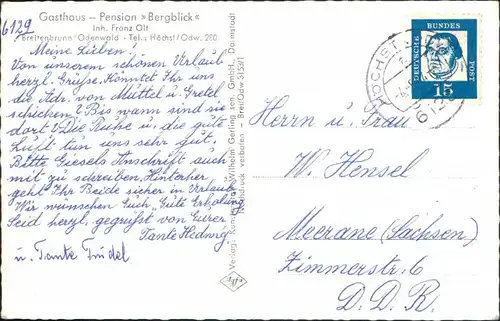 6129
Gasthaus - Pension »Bergblick«
Inh. Franz Olt
Breitenbrunn/Odenwald - Tel.: Höchst/Odw. 280
Meine Lieben!
Von unserem schönen Urlaub
herzl. Grüße. Könntet Ihr uns
die Adr. von Müttel u. Gretel
schicken? Bis wann sind sie
dort? Die Ruhe u. die gute
Luft tun uns sehr gut.
Bitte Giesels Anschrift auch
mit zu schreiben. Hinterher
geht Ihr Beide sicher in Urlaub.
Wir wünschen Euch "Gute Erholung"
Seid herzl. gegrüßt von Eurer
Tante Hedwig
u. Tante Trudel
Wilhelm Gerling sen. GmbH., Darmstadt
Nachdruck verboten - BreitOdw 315291
DEUTSCHE BUNDES POST
15
HÖCHST
612
Herrn u. Frau
W. Hensel
Meerane (Sachsen)
Zimmerstr. 6
D.D.R.